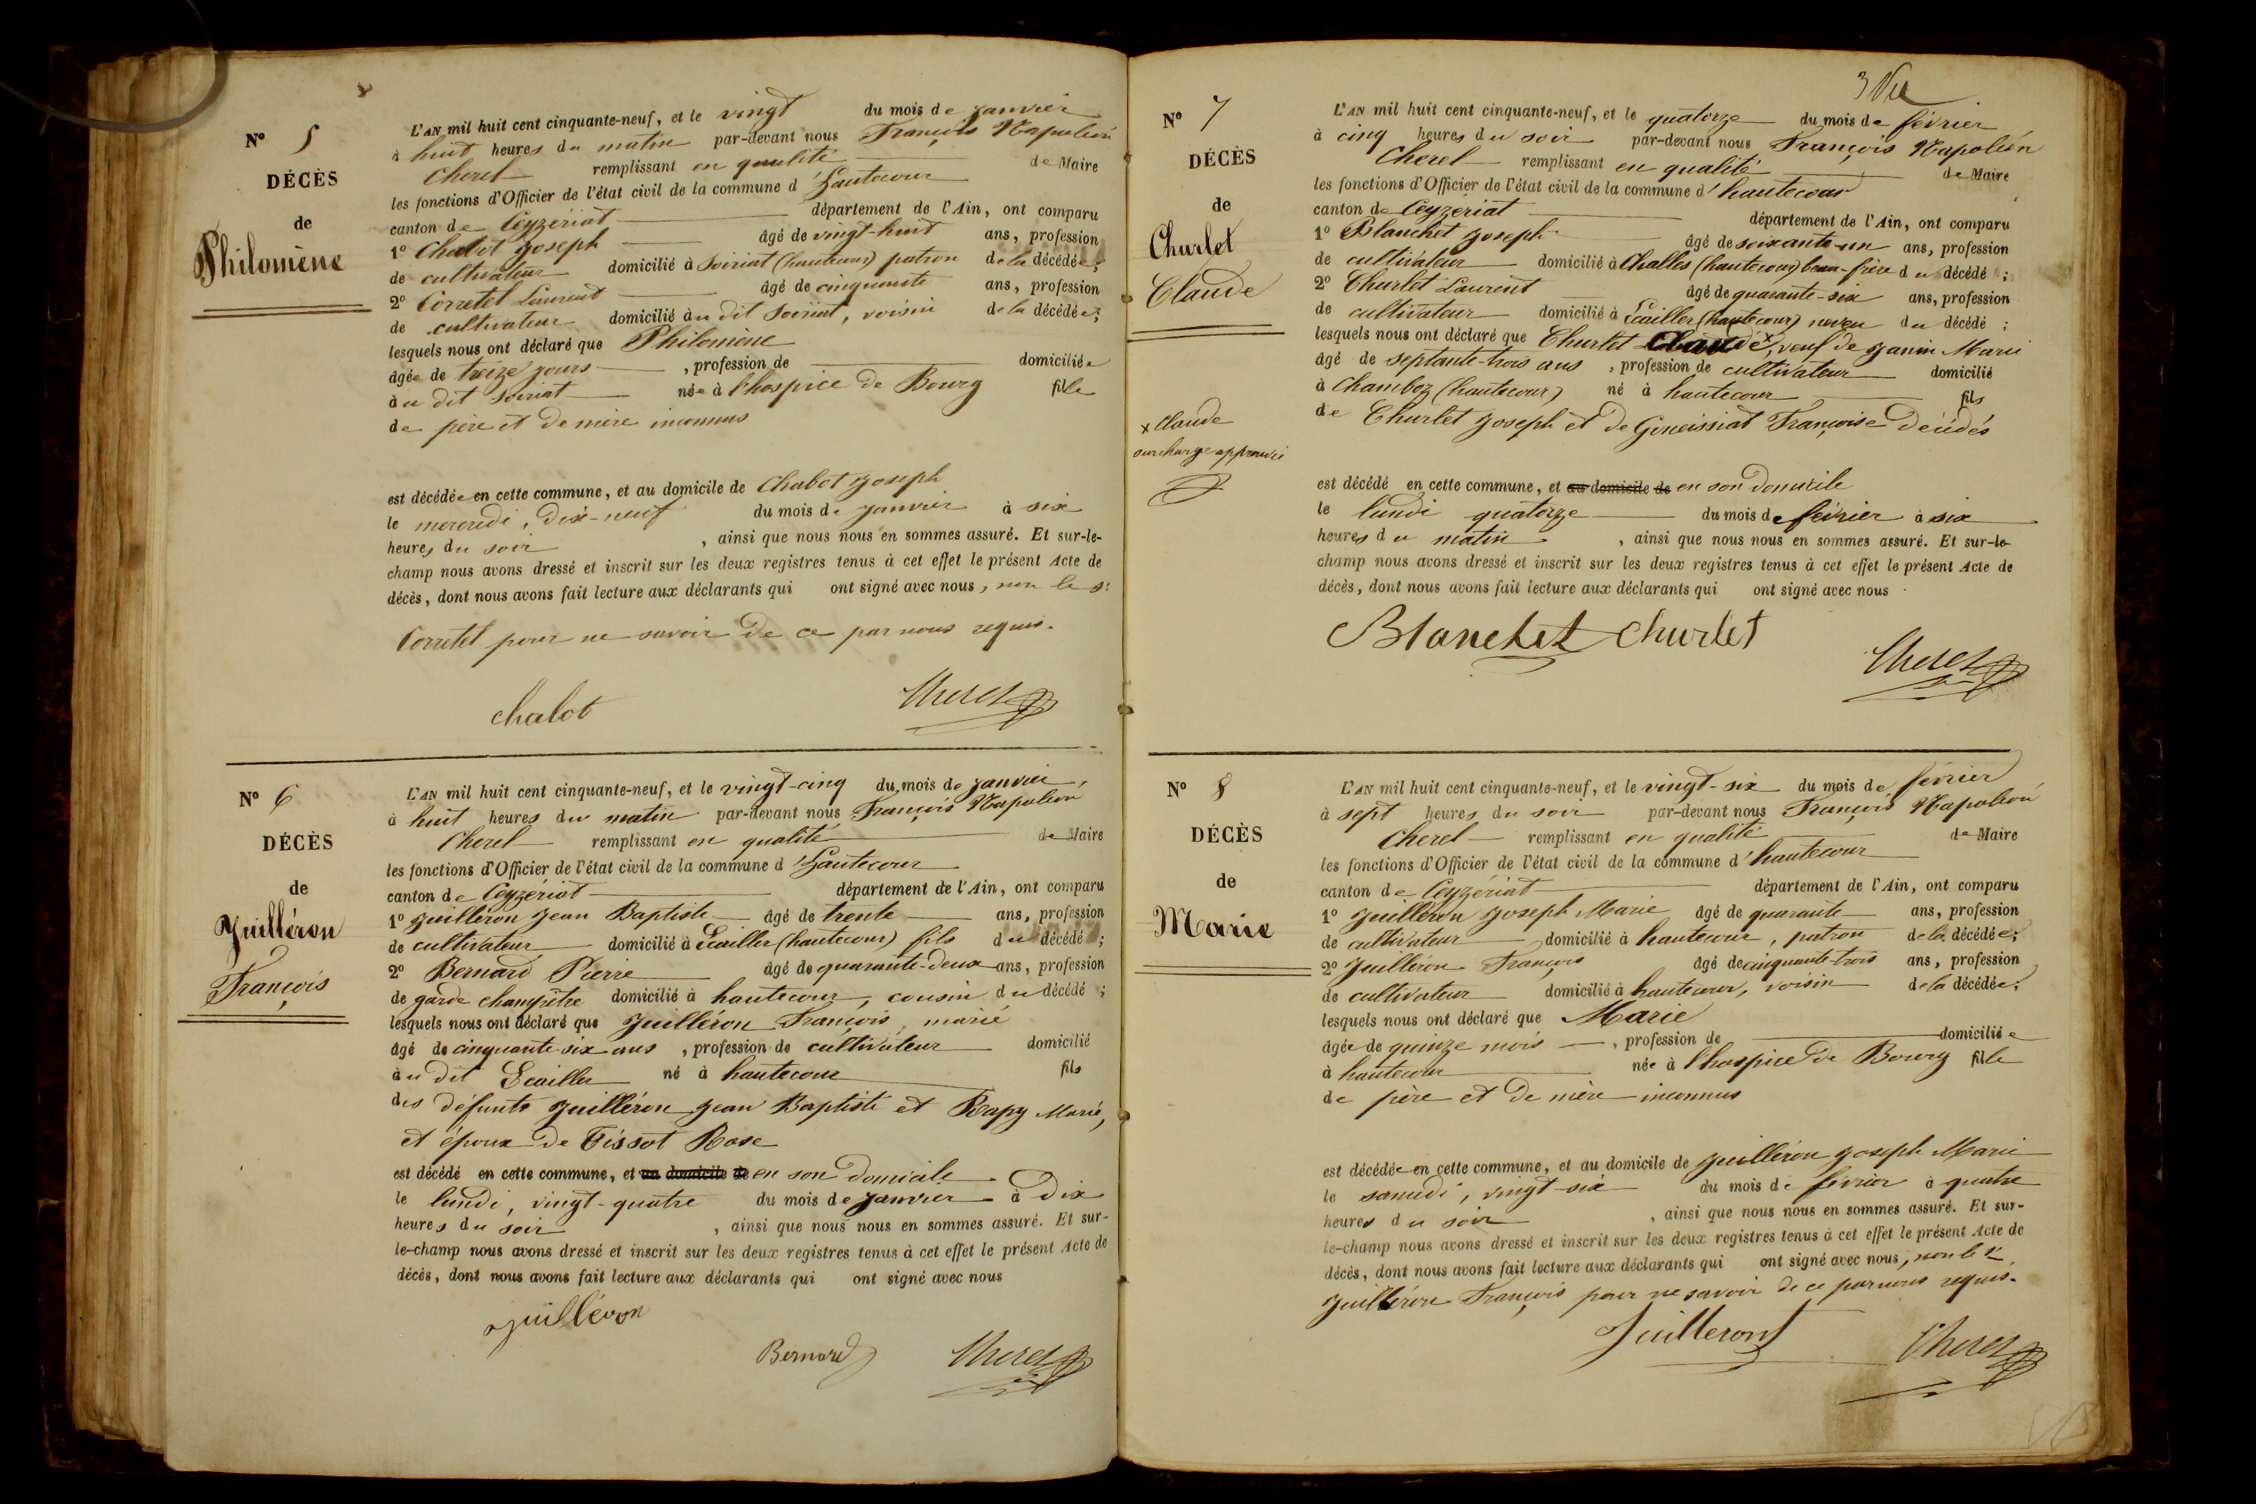 Nº 5
DÉCÈS
de
Philomène
L'AN mil huit cent cinquante-neuf, et le vingt du mois de janvier
à huit heures du matin par-devant nous François Napoléon
Cherel remplissant en qualité de Maire
les fonctions d'Officier de l'état civil de la commune d'hautecour
canton de Ceyzériat département de l'Ain, ont comparu
1º Chalot Joseph âgé de vingt-huit ans, profession
de cultivateur domicilié à Soiriat (hautecour) patron de la décédée;
2º Corretel Laurent âgé de cinquante ans, profession
de cultivateur domicilié au dit Soiriat, voisin de la décédée;
lesquels nous ont déclaré que Philomène
âgée de treize jours, profession de domiciliée
au dit Soiriat née à l'hospice de Bourg fille
de père et de mère inconnus
est décédée en cette commune, et au domicile de Chabot Joseph
le mercredi, dix-neuf du mois de janvier à six
heures du soir, ainsi que nous nous en sommes assuré. Et sur-le-
champ nous avons dressé et inscrit sur les deux registres tenus à cet effet le présent Acte de
décès, dont nous avons fait lecture aux déclarants qui ont signé avec nous, non le s:
Corretel pour ne savoir de ce par nous requis.
chalot Cherel
Nº 6
DÉCÈS
de
Juilléron
François
L'AN mil huit cent cinquante-neuf, et le vingt-cinq du mois de janvier,
à huit heures du matin par-devant nous François Napoléon
Cherel remplissant en qualité de Maire
les fonctions d'Officier de l'état civil de la commune d'hautecour
canton de Ceyzériat département de l'Ain, ont comparu
1º Juilléron Jean Baptiste âgé de trente ans, profession
de cultivateur domicilié à Ecailler (hautecour) fils du décédé;
2º Bernard Pierre âgé de quarante-deux ans, profession
de garde champêtre domicilié à hautecour, cousin du décédé;
lesquels nous ont déclaré que Juilléron François, marié
âgé de cinquante six ans, profession de cultivateur domicilié
au dit Ecailler né à hautecour fils
des défunts Juilléron Jean Baptiste et Rapy Marie,
et époux de Tissot Rose
est décédé en cette commune, et au domicile de en son domicile
le lundi, vingt-quatre du mois de janvier à dix
heures du soir, ainsi que nous nous en sommes assuré. Et sur-
le-champ nous avons dressé et inscrit sur les deux registres tenus à cet effet le présent Acte de
décès, dont nous avons fait lecture aux déclarants qui ont signé avec nous
Juilléron
Bernard Cherel
3 Vu
Nº 7
DÉCÈS
de
Churlet
Claude
x Claude
surcharge approuvée
L'AN mil huit cent cinquante-neuf, et le quatorze du mois de février
à cinq heures du soir par-devant nous François Napoléon
Cherel remplissant en qualité de Maire
les fonctions d'Officier de l'état civil de la commune d'hautecour
canton de Ceyzeriat département de l'Ain, ont comparu
1º Blanchet Joseph âgé de soixante-un ans, profession
de cultivateur domicilié à Challes (hautecour) beau-frère du décédé;
2º Churlet Laurent âgé de quarante-six ans, profession
de cultivateur domicilié à Ecailler (hautecour) neveu du décédé;
lesquels nous ont déclaré que Churlet Claude x, veuf de Janin Marie
âgé de septante-trois ans, profession de cultivateur domicilié
à Chamboz (hautecour) né à hautecour fils
de Churlet Joseph et de Goneissiat Françoise décédés
est décédé en cette commune, et au domicile de en son domicile
le lundi quatorze du mois de février à six
heures du matin, ainsi que nous nous en sommes assuré. Et sur-le-
champ nous avons dressé et inscrit sur les deux registres tenus à cet effet le présent Acte de
décès, dont nous avons fait lecture aux déclarants qui ont signé avec nous
Blanchet churlet
Cherel
Nº 8
DÉCÈS
de
Marie
L'AN mil huit cent cinquante-neuf, et le vingt-six du mois de février
à sept heures du soir par-devant nous François Napoléon
Cherel remplissant en qualité de Maire
les fonctions d'Officier de l'état civil de la commune d'hautecour
canton de Ceyzériat département de l'Ain, ont comparu
1º Juilléron Joseph Marie âgé de quarante ans, profession
de cultivateur domicilié à hautecour, patron de la décédée;
2º Juilléron François âgé de cinquante-trois ans, profession
de cultivateur domicilié à hautecour, voisin de la décédée,
lesquels nous ont déclaré que Marie
âgée de quinze mois, profession de domiciliée
à hautecour née à l'hospice de Bourg fille
de père et de mère inconnus
est décédée en cette commune, et au domicile de Juilléron Joseph Marie
le samedi, vingt-six du mois de février à quatre
heures du soir, ainsi que nous nous en sommes assuré. Et sur-
le-champ nous avons dressé et inscrit sur les deux registres tenus à cet effet le présent Acte de
décès, dont nous avons fait lecture aux déclarants qui ont signé avec nous, non le s:
Juilléron François pour ne savoir de ce par nous requis.
Juilleront Cherel